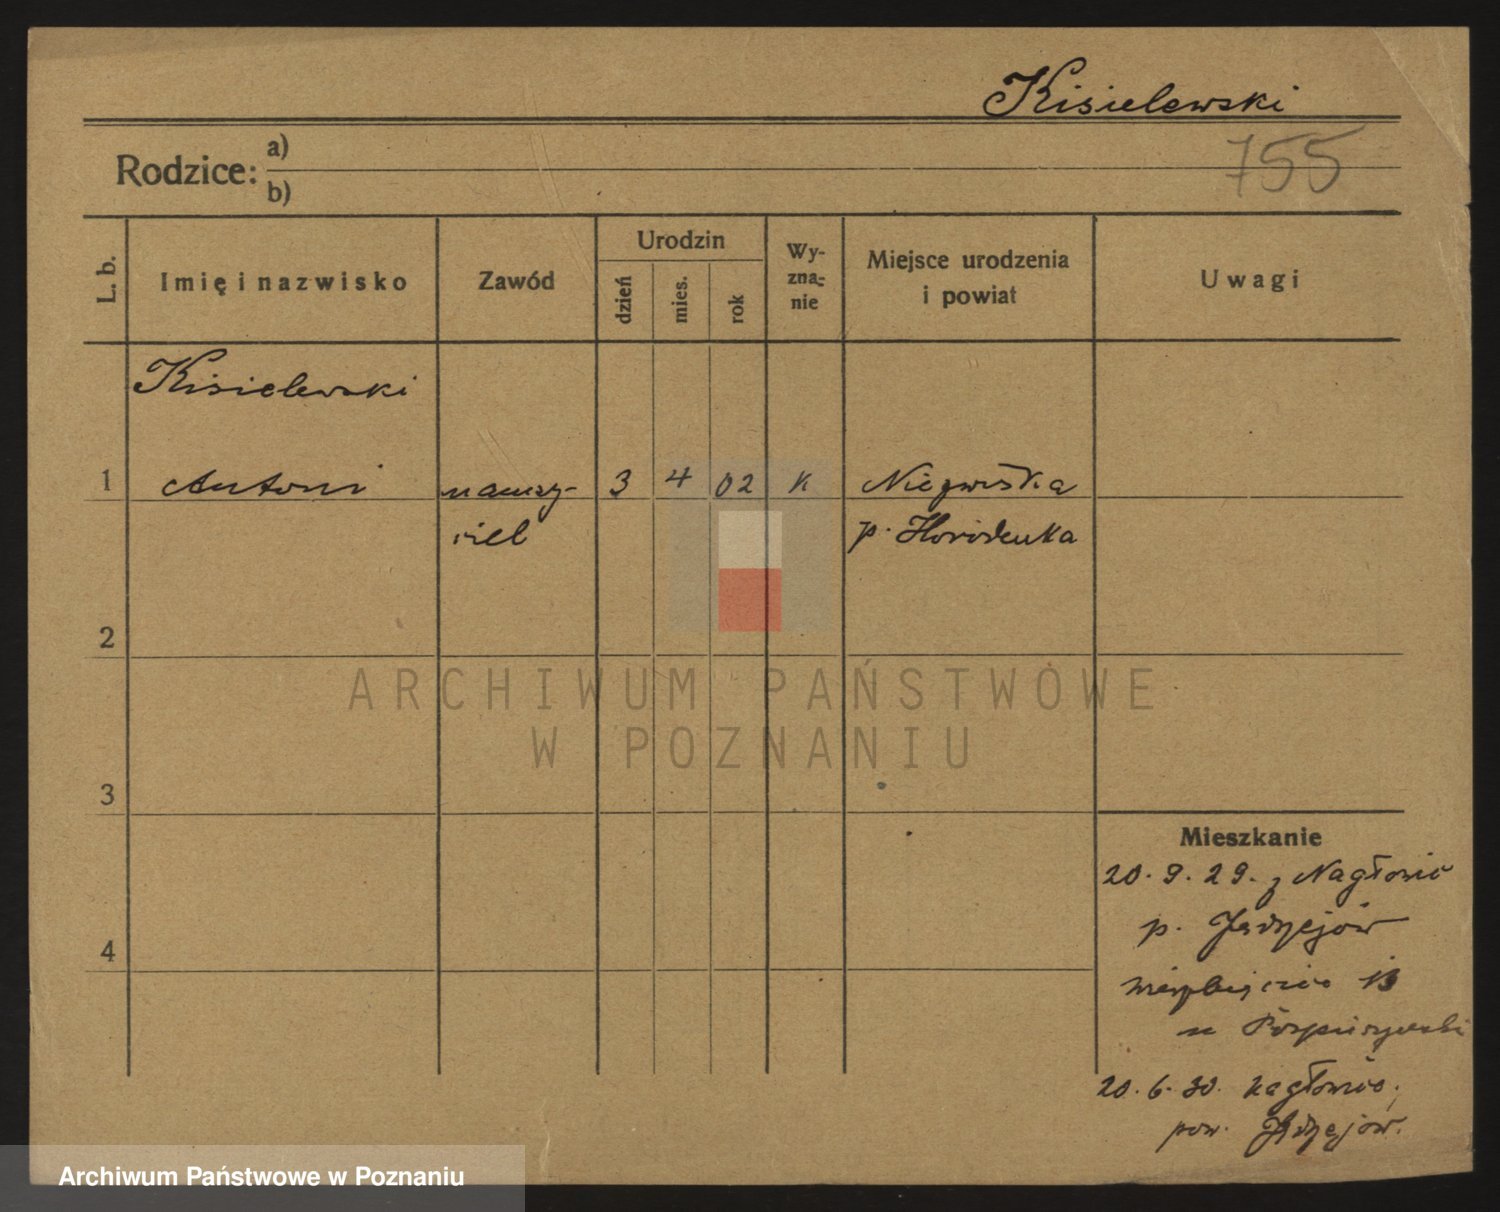 Kisielewski
755
Rodzice: a)
b)
L. b.
Imię i nazwisko
Zawód
Urodzin
dzień
mies.
rok
Wy-
zna-
nie
Miejsce urodzenia
i powiat
Uwagi
Kisielewski
1 Antoni nauczy- 3 4 02 K Niezwiska
ciel p. Horodenka
2
3
4
Mieszkanie
20. 9. 29. z Nagłowic
p. Jędrzejów
13
u
20. 6. 30. Nagłowice,
pow. Jędrzejów.
ARCHIWUM PAŃSTWOWE
W POZNANIU
Archiwum Państwowe w Poznaniu